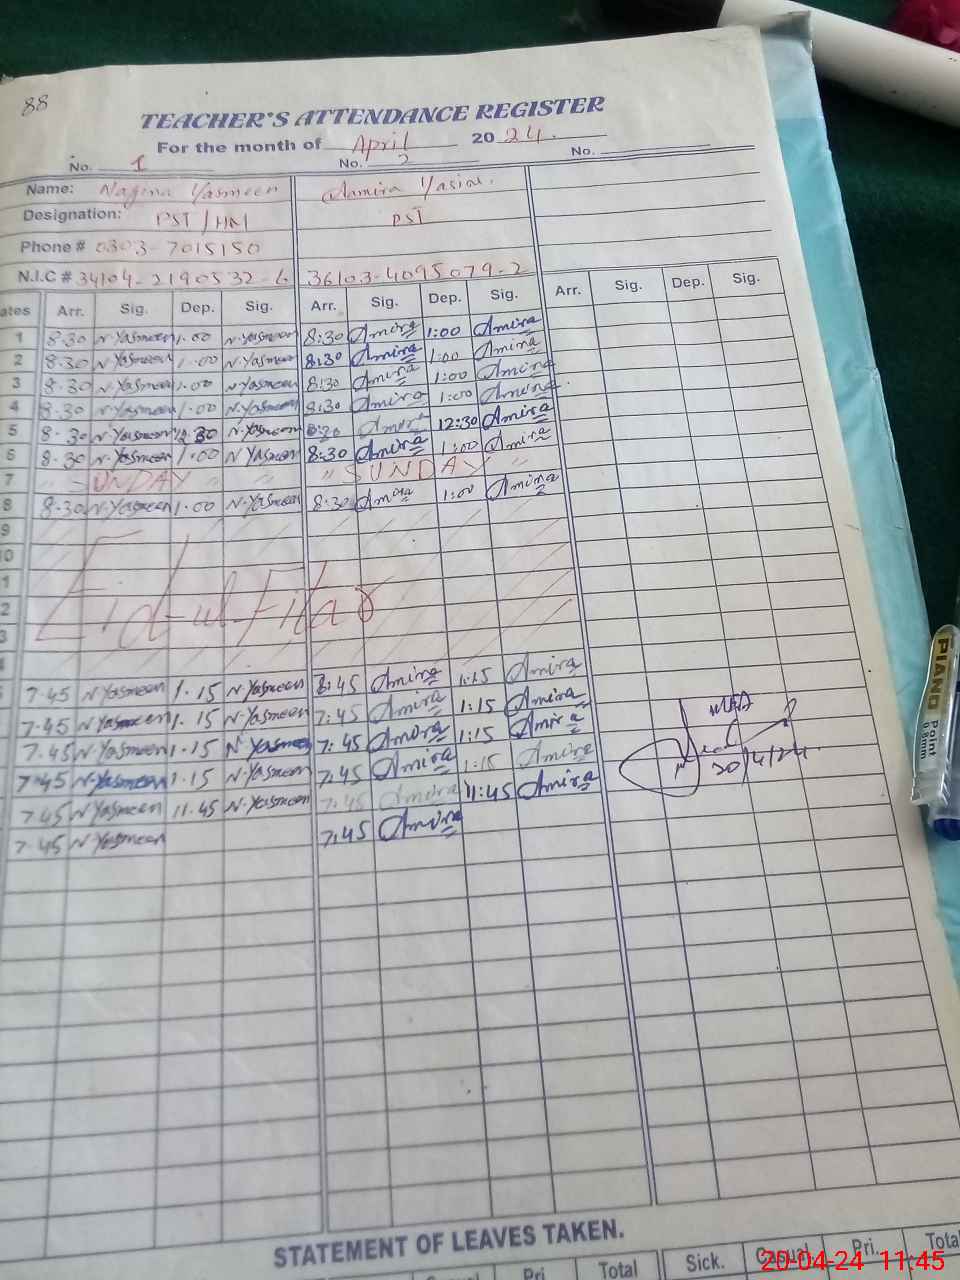 88
TEACHER'S ATTENDANCE REGISTER
For the month of April 2024.
No. 1 No. 2 No.
Name: Nagina Yasmeen Samira Yasin.
Designation: PST/HM PST
Phone # 0303-7015150
N.I.C # 34104-2190532-6 36103-4095079-2
ates Arr. Sig. Dep. Sig. Arr. Sig. Dep. Sig. Arr. Sig. Dep. Sig.
1 8.30 N.Yasmeen 1.00 N.Yasmeen 8:30 Amira 1:00 Amira
2 8.30 N.Yasmeen 1.00 N.Yasmeen 8:30 Amira 1:00 Amira
3 8.30 N.Yasmeen 1.00 N.Yasmeen 8:30 Amira 1:00 Amira
4 8.30 N.Yasmeen 1.00 N.Yasmeen 8:30 Amira 1:00 Amira
5 8.30 N.Yasmeen 12.30 N.Yasmeen 8:30 Amira 12:30 Amira
6 8.30 N.Yasmeen 1.00 N Yasmeen 8:30 Amira 1:00 Amira
7 " SUNDAY " " " SUNDAY " "
8 8.30 N.Yasmeen 1.00 N.Yasmeen 8:30 Amira 1:00 Amira
9
10
1
2 Eid-ul-Fitar
3
4
7.45 N Yasmeen 1.15 N.Yasmeen 8:45 Amira 1:15 Amira
7.45 N Yasmeen 1.15 N.Yasmeen 7:45 Amira 1:15 Amira
7.45 N Yasmeen 1.15 N Yasmeen 7:45 Amira 1:15 Amira
7.45 N.Yasmeen 1.15 N.Yasmeen 7:45 Amira 1:15 Amira
7.45 N Yasmeen 11.45 N.Yasmeen 7:45 Amira 11:45 Amira
7.45 N Yasmeen 7:45 Amira
20/4/24
PIANO
Point
0.8mm
STATEMENT OF LEAVES TAKEN.
Casual Pri. Total Sick. Casual Pri. Total
20-04-24 11:45